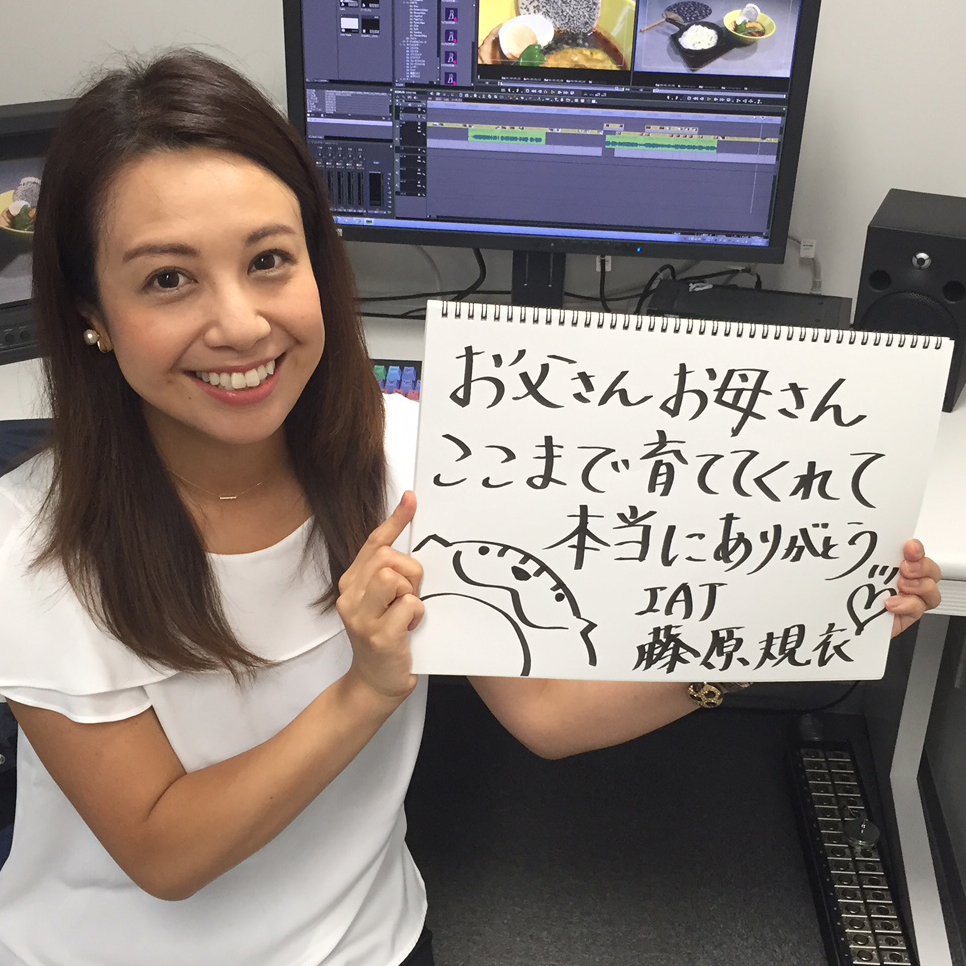 お父さんお母さん
ここまで育ててくれて
本当にありがとう
IAT
藤原規衣